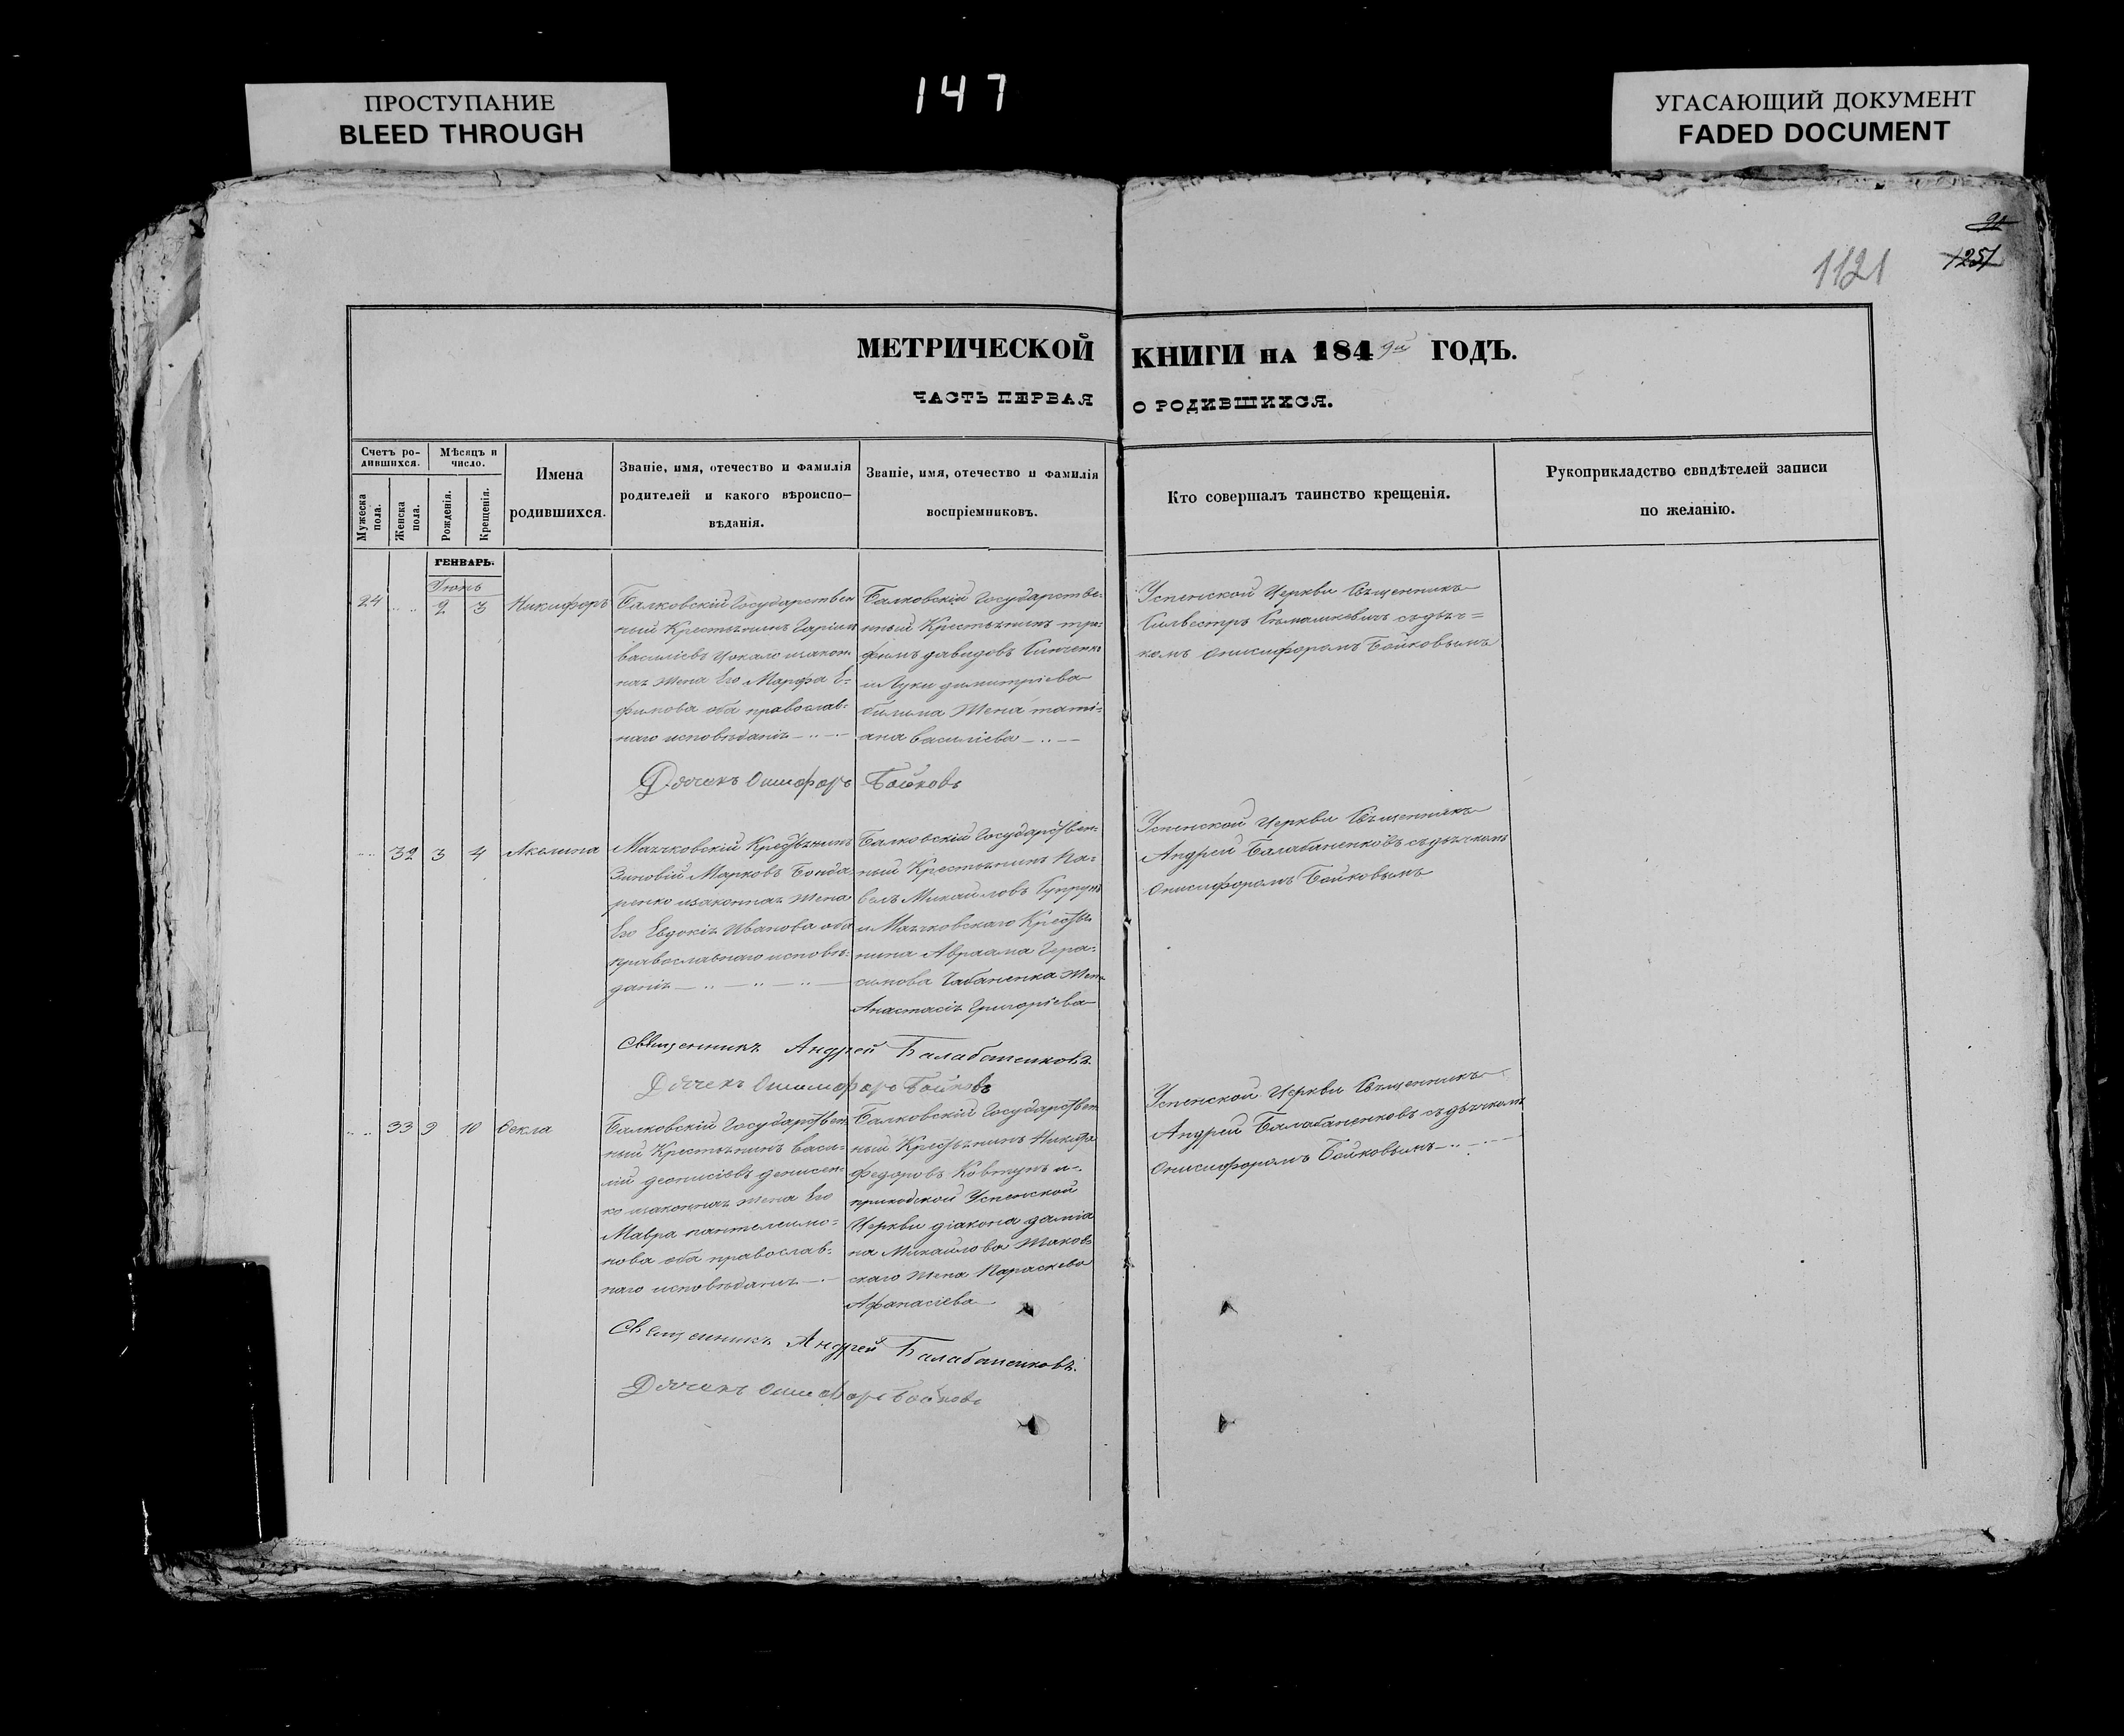 ПРОСТУПАНИЕ
BLEED THROUGH
147
УГАСАЮЩИЙ ДОКУМЕНТ
FADED DOCUMENT
91
1251
1121
МЕТРИЧЕСКОЙ КНИГИ НА 1849й ГОДЪ.
ЧАСТЬ ПЕРВАЯ О РОДИВШИХСЯ.
Счетъ ро-
дившихся.
Мужеска пола.
Женска пола.
Мѣсяцъ и
число.
Рожденія.
Крещенія.
Имена
родившихся.
Званіе, имя, отечество и фамилія
родителей и какого вѣроиспо-
вѣданія.
Званіе, имя, отечество и фамилія
воспріемниковъ.
Кто совершалъ таинство крещенія.
Рукоприкладство свидѣтелей записи
по желанію.
ГЕНВАРЬ.
Іюнь
24 2 3 Никифоръ
Балковскій Государствен
ный Крестьянинъ
василіевъ законн
ная жена Его Марфа Е-
фимова оба православ-
наго исповѣданія
Балковскій Государстве-
нный Крестьянинъ тро-
фимъ давидовъ
и Луки димитріева
жена таті-
ана василіева
Успенской Церкви Священникъ
Сильвестръ съ дьяч=
комъ Онисифоромъ Бойковымъ
Дьячекъ Онисифоръ Бойковъ
32 3 4 Акелина
Маячковскій Крестьянинъ
Зиновій Марковъ Бонда
ренко изаконная жена
Его Евдокія Иванова оба
православнаго исповѣ-
данія
Балковскій Государствен-
ный Крестьянинъ Па-
велъ Михайловъ Супрунъ
и Маячковскаго Крестья
нина Авраама Гера-
симова Чабаненка жена
Анастасія Григоріева
Успенской Церкви Священникъ
Андрей Балабаненковъ съ дьячкомъ
Онисифоромъ Бойковымъ
Священникъ Андрей Балабаненковъ
Дьячекъ Онисифоръ Бойковъ
33 9 10 Ѳекла
Балковскій Государствен
ный Крестьянинъ васи-
лій деонисіевъ денисен-
ко изаконная жена Его
Мавра пантелеимо-
нова оба православ-
наго исповѣданія
Балковскій Государствен
ный Крестьянинъ Никифо
федоровъ Ковтунъ и
приходской Успенской
Церкви діакона даміа
на Михайлова
скаго жена Параскева
Афанасіева
Успенской Церкви Священникъ
Андрей Балабаненковъ съ дьячкомъ
Онисифоромъ Бойковымъ
Священникъ Андрей Балабаненковъ.
Дьячекъ Онисифоръ Бойковъ